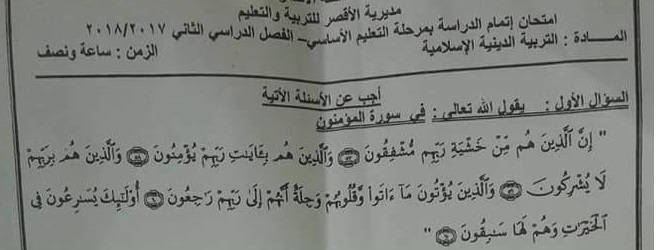 مديرية الأقصر للتربية والتعليم
امتحان إتمام الدراسة بمرحلة التعليم الأساسي - الفصل الدراسي الثاني ٢٠١٨/٢٠١٧
المـــادة : التربية الدينية الإسلامية الزمن : ساعة ونصف
أجب عن الأسئلة الأتية
السؤال الأول : يقول الله تعالى : في سورة المؤمنون
" إِنَّ ٱلَّذِينَ هُم مِّنْ خَشْيَةِ رَبِّهِم مُّشْفِقُونَ ٥٧ وَٱلَّذِينَ هُم بِـَٔايَـٰتِ رَبِّهِمْ يُؤْمِنُونَ ٥٨ وَٱلَّذِينَ هُم بِرَبِّهِمْ
لَا يُشْرِكُونَ ٥٩ وَٱلَّذِينَ يُؤْتُونَ مَآ ءَاتَوا۟ وَّقُلُوبُهُمْ وَجِلَةٌ أَنَّهُمْ إِلَىٰ رَبِّهِمْ رَٰجِعُونَ ٦٠ أُو۟لَـٰٓئِكَ يُسَـٰرِعُونَ فِى
ٱلْخَيْرَٰتِ وَهُمْ لَهَا سَـٰبِقُونَ ٦١ "